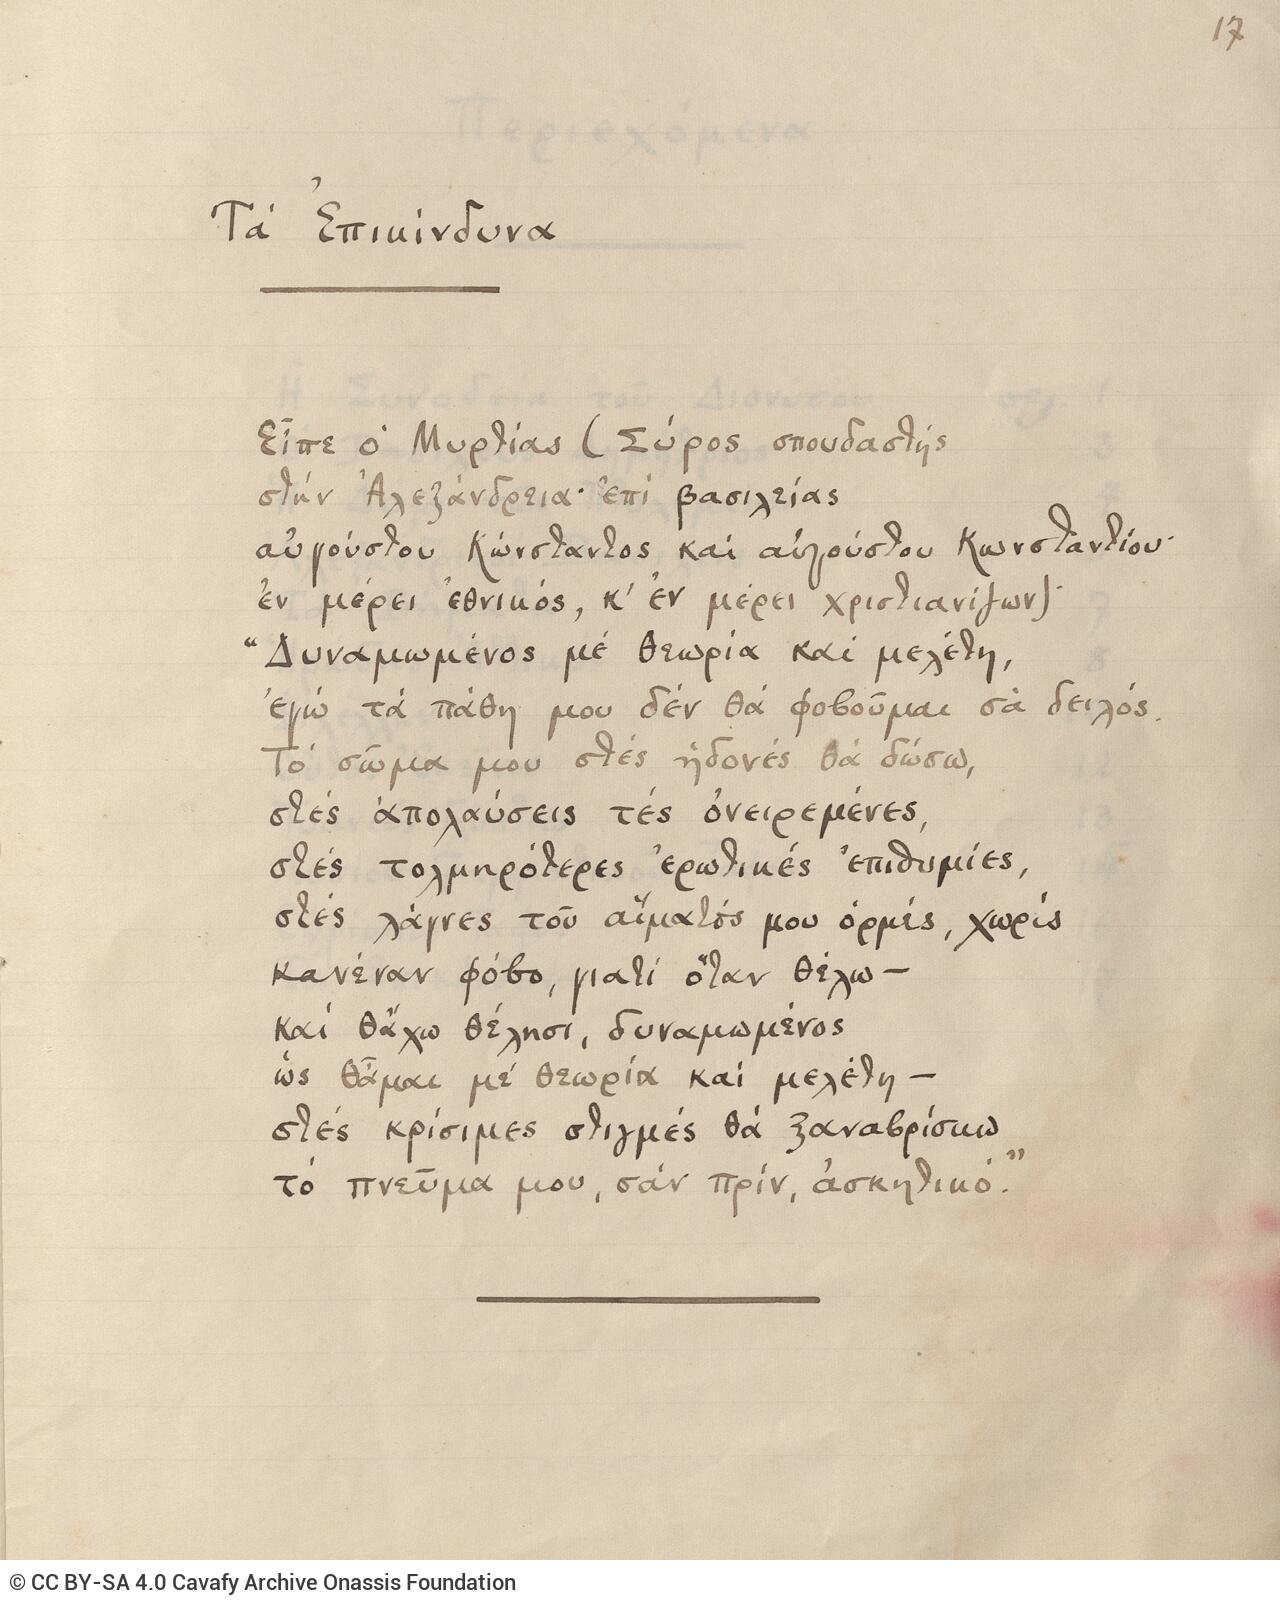 17
Τά Ἐπικίνδυνα
Εἶπε ὁ Μυρτίας (Σύρος σπουδαστής
στήν Ἀλεξάνδρεια· ἐπί βασιλείας
αὐγούστου Κώνσταντος καί αὐγούστου Κωνσταντίου·
ἐν μέρει ἐθνικός, κ' ἐν μέρει χριστιανίζων)·
“Δυναμωμένος μέ θεωρία καί μελέτη,
ἐγώ τά πάθη μου δέν θά φοβοῦμαι σὰ δειλός.
Τό σῶμα μου στές ἡδονές θά δώσω,
στές ἀπολαύσεις τές ὀνειρεμένες,
στές τολμηρότερες ἐρωτικές ἐπιθυμίες,
στές λάγνες τοῦ αἵματός μου ὁρμές, χωρίς
κανέναν φόβο, γιατί ὅταν θέλω —
καί θἄχω θέλησι, δυναμωμένος
ὡς θἆμαι μέ θεωρία καί μελέτη —
στές κρίσιμες στιγμές θά ξαναβρίσκω
τό πνεῦμα μου, σάν πρίν, ἀσκητικό.”
© CC BY-SA 4.0 Cavafy Archive Onassis Foundation